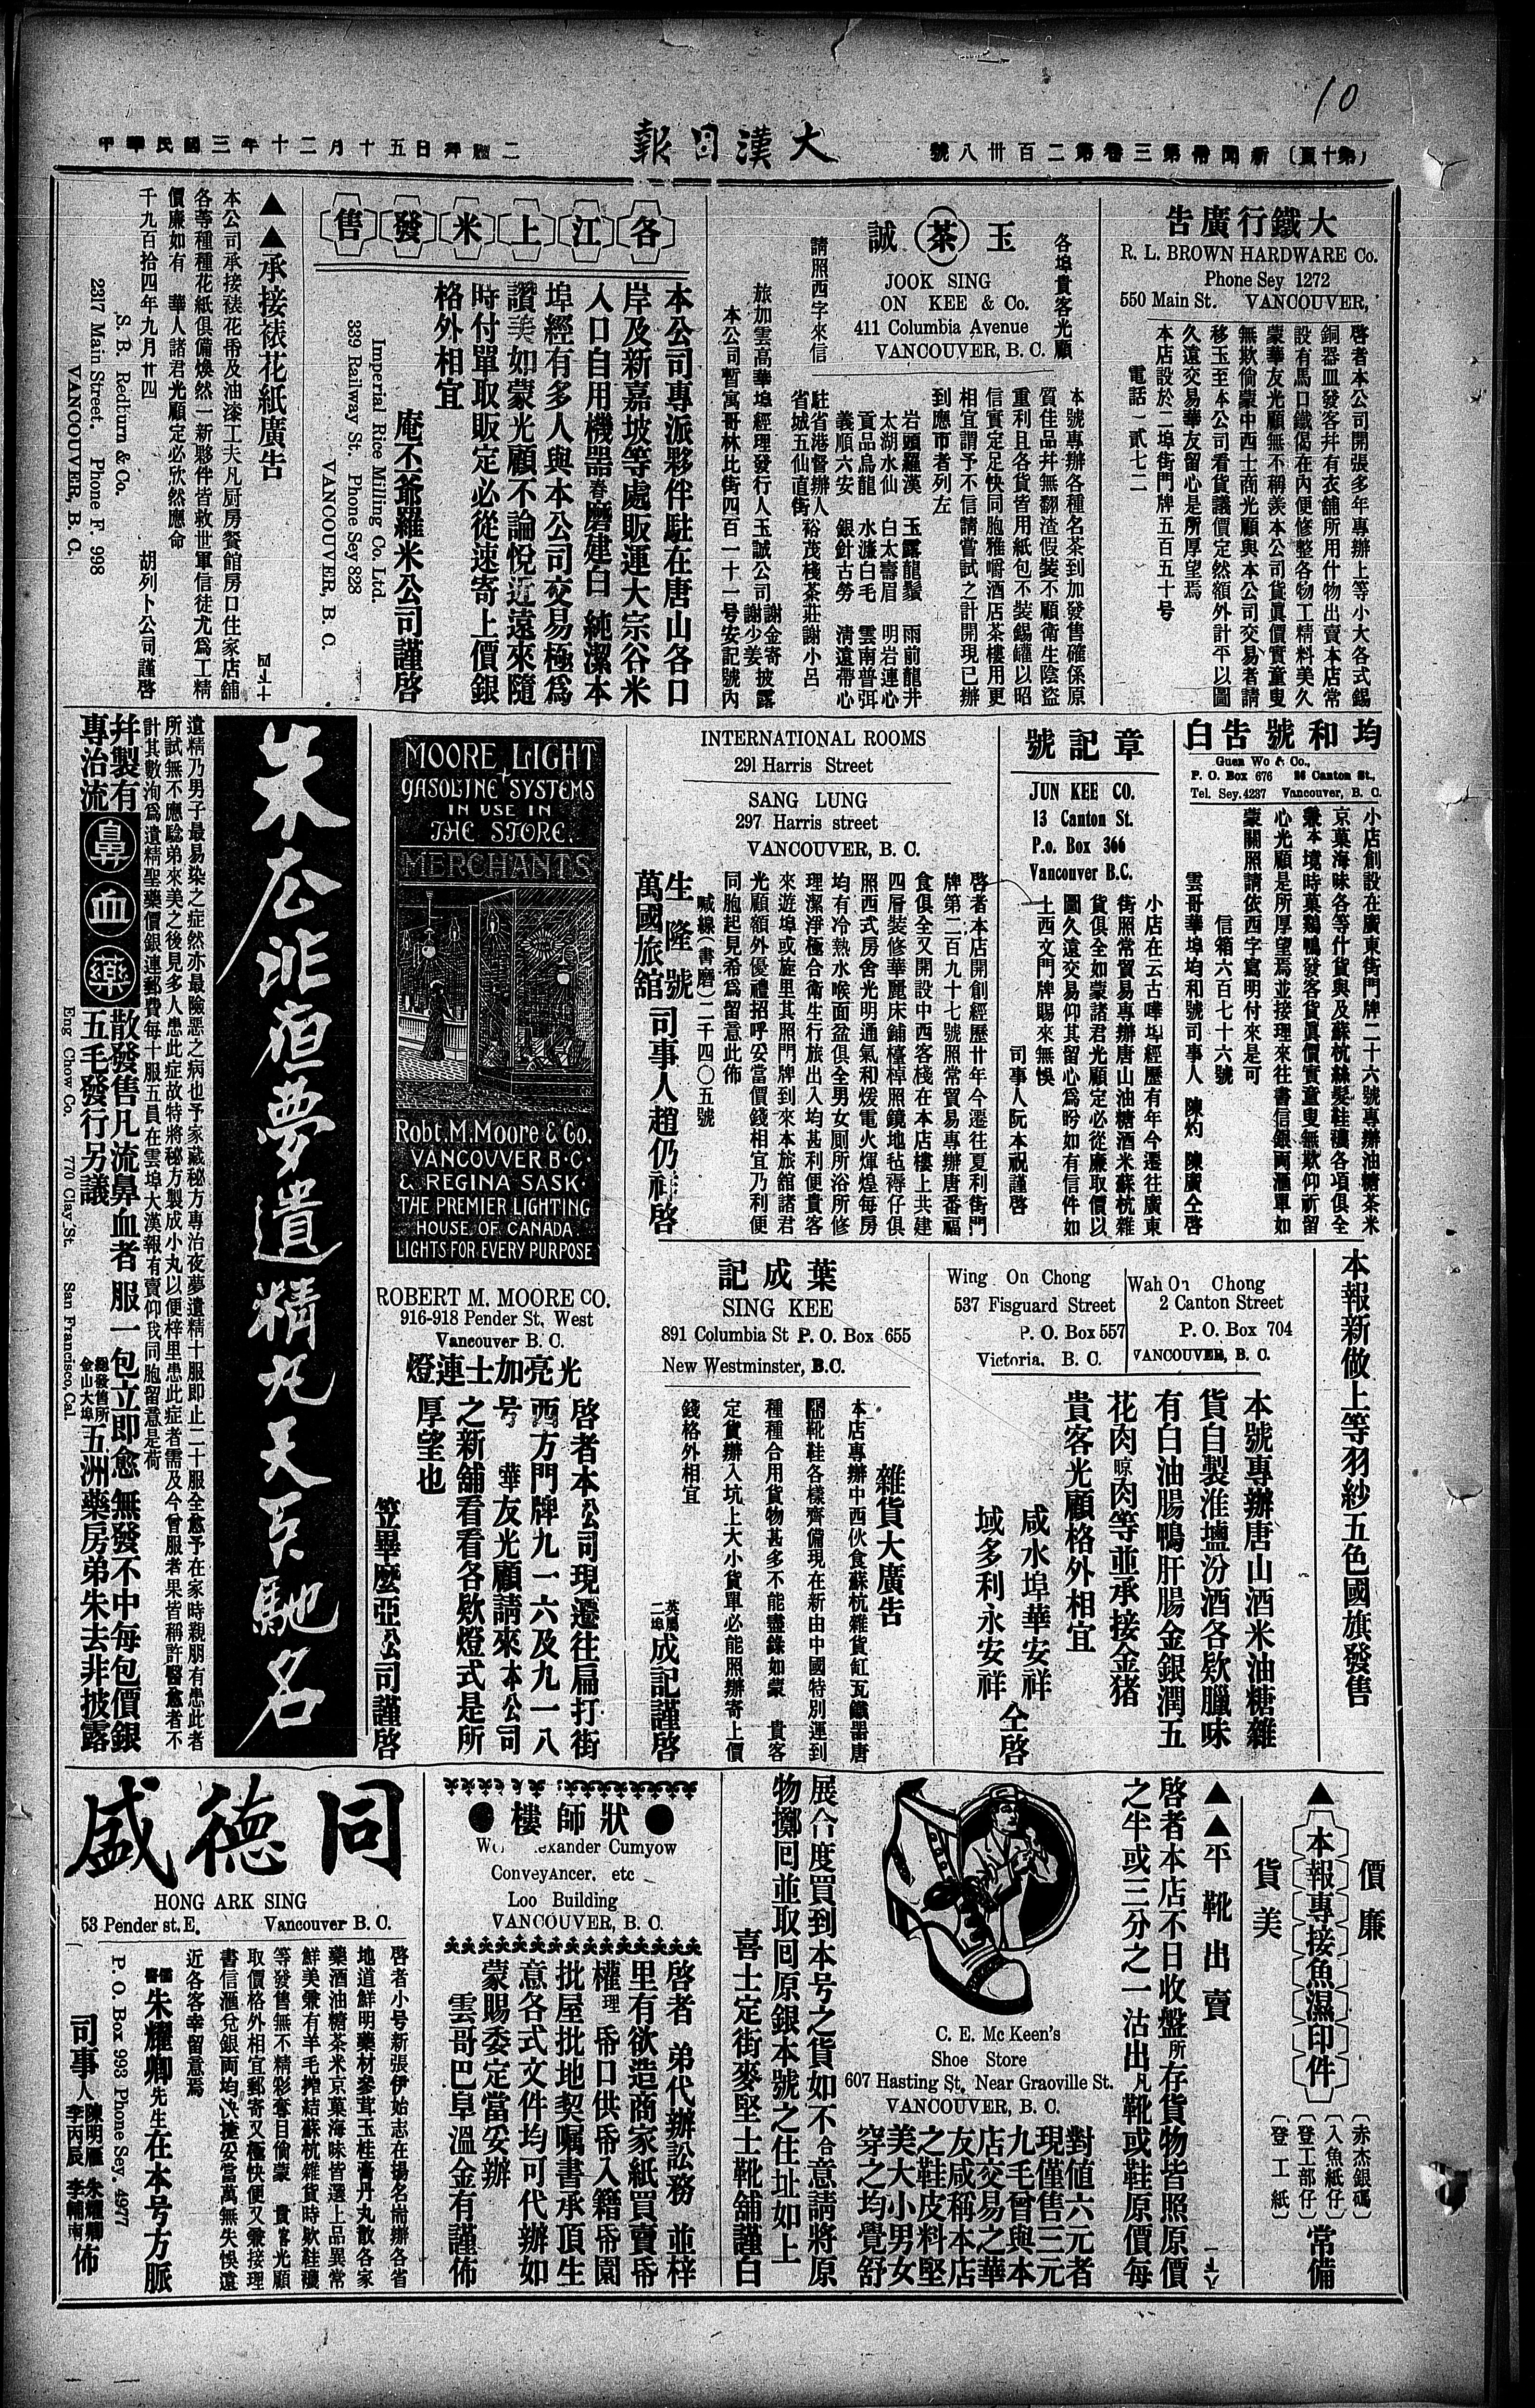 10
(第十頁) 新聞卷第三卷第二百卅八號
大漢日報
中華民國三年十二月十五日拜禮二
大鐵行廣告
R. L. BROWN HARDWARE Co.
Phone Sey 1272
550 Main St. VANCOUVER,
啓者本公司開張多年專辦上等小大各式錫
銅器皿發客幷有衣舖所用什物出賣本店常
設有馬口鐵偈在內便修整各物工精料美久
蒙華友光顧無不稱羨本公司貨眞價實童叟
無欺倘蒙中西士商光顧與本公司交易者請
移玉至本公司看貨議價定然額外計平以圖
久遠交易華友留心是所厚望焉
本店設於二埠街門牌五百五十号
電話一貳七二
各埠貴客光顧
玉茶誠
JOOK SING
ON KEE & Co.
411 Columbia Avenue
VANCOUVER, B. C.
請照西字來信
本號專辦各種名茶到加發售確係原
質佳品幷無翻渣假裝不顧衛生陰盜
重利且各貨皆用紙包不裝錫罐以昭
信實定足快同胞雅嚼酒店茶樓用更
相宜謂予不信請嘗試之計開現已辦
到應市者列左
岩頭羅漢 玉露龍鬚 雨前龍井
太湖水仙 白太壽眉 明岩連心
貢品烏龍 水濂白毛 雲南普弭
義順六安 銀針古勞 淸遠帶心
駐省港督辦人
省城五仙直街 裕茂棧茶莊謝小呂
旅加雲高華埠經理發行人玉誠公司 謝金寄 謝少姜 披露
本公司暫寓哥林此街四百一十一号安記號內
各江上米發售
本公司專派夥伴駐在唐山各口
岸及新嘉坡等處販運大宗谷米
人口自用機器舂磨建白 純潔本
埠經有多人與本公司交易極爲
讚美如蒙光顧不論悅近遠來隨
時付單取販定必從速寄上價銀
格外相宜
庵丕爺羅米公司謹啓
Imperial Rice Milling Co. Ltd.
339 Railway St. Phone Sey 828
VANCOUVER, B. C.
▲▲承接裱花紙廣告
本公司承接裱花帋及油漆工夫凡厨房餐館房口住家店舖
各等種種花紙俱備煥然一新夥伴皆救世軍信徒尤爲工精
價廉如有 華人諸君光顧定必欣然應命
千九百拾四年九月廿四 胡列卜公司謹啓
S. B. Redburn & Co.
2317 Main Street. Phone F. 998
VANCOUVER, B. C.
均和號告白
Guen Wo & Co.,
P. O. Box 676 26 Canton St.,
Tel. Sey. 4237 Vancouver, B. C.
小店創設在廣東街門牌二十六號專辦油糖茶米
京菓海味各等什貨與及蘇杭絲髮鞋襪各項俱全
兼本境時菓鷄鴨發客貨眞價實童叟無欺仰祈留
心光顧是所厚望焉並接理來往書信銀両滙單如
蒙關照請依西字寫明付來是可
信箱六百七十六號
雲哥華埠均和號司事人 陳灼 陳廣仝啓
章記號
JUN KEE CO.
13 Canton St.
P.o. Box 366
Vancouver B.C.
小店在云古嘩埠經歷有年今遷往廣東
街照常貿易專辦唐山油糖酒米蘇杭雜
貨俱全如蒙諸君光顧定必從廉取價以
圖久遠交易仰其留心爲盼如有信件如
上西文門牌賜來無悞
司事人阮本祝謹啓
INTERNATIONAL ROOMS
291 Harris Street
SANG LUNG
297 Harris street
VANCOUVER, B. C.
啓者本店開創經歷廿年今遷往夏利街門
牌第二百九十七號照常貿易專辦唐番福
食俱全又開設中西客棧在本店樓上共建
四層裝修華麗床鋪檯椅照鏡地毡褥仔俱
照西式房舍光明通氣和煖電火煇煌每房
均有冷熱水喉面盆俱全男女厠所浴所修
理潔淨極合衛生行旅出入均甚利便貴客
來遊埠或旋里其照門牌到來本旅舘諸君
光顧額外優禮招呼妥當價錢相宜乃利便
同胞起見希爲留意此佈
喊線(書磨)二千四〇五號
生隆號
萬國旅舘 司事人趙仍祥啓
MOORE LIGHT
GASOLINE SYSTEMS
IN USE IN
THE STORE.
MERCHANTS
Robt. M. Moore & Co.
VANCOUVER B.C.
& REGINA SASK.
THE PREMIER LIGHTING
HOUSE OF CANADA.
LIGHTS FOR EVERY PURPOSE
ROBERT M. MOORE CO.
916-918 Pender St, West
Vancouver B. C.
光亮加士連燈
啓者本公司現遷往扁打街
西方門牌九一六及九一八
号 華友光顧請來本公司
之新舖看看各欵燈式是所
厚望也
笠畢麽亞公司謹啓
朱去非宿夢遺精丸天下馳名
遺精乃男子最易染之症然亦最險惡之病也予家藏秘方專治夜夢遺精十服即止二十服全愈予在家時親朋有患此者
所試無不應騐弟來美之後見多人患此症故特將秘方製成小丸以便梓里患此症者需及今曾服者果皆稱許醫愈者不
計其數洵爲遺精聖藥價銀連郵費每十服五員在雲埠大漢報有賣仰我同胞留意是荷
幷製有
專治流 鼻血藥 散發售凡流鼻血者 服一包立即愈 無發不中每包價銀
五毛發行另議 總發售所金山大埠 五洲藥房弟朱去非披露
Eng Chow Co. 770 Clay St. San Francisco, Cal.
本報新做上等羽紗五色國旗發售
Wah On Chong
2 Canton Street
P. O. Box 704
VANCOUVER, B. C.
Wing On Chong
537 Fisguard Street
P. O. Box 557
Victoria, B. C.
本號專辦唐山酒米油糖雜
貨自製淮塩汾酒各欵臘味
有白油腸鴨肝腸金銀潤五
花肉晾肉等並承接金猪
貴客光顧格外相宜
咸水埠華安祥
域多利永安祥 仝啓
葉成記
SING KEE
891 Columbia St P. O. Box 655
New Westminster, B.C.
雜貨大廣告
本店專辦中西伙食蘇杭雜貨缸瓦鐵器唐
式靴鞋各樣齊備現在新由中國特別運到
種種合用貨物甚多不能盡錄如蒙 貴客
定貨辦入坑上大小貨單必能照辦寄上價
錢格外相宜
英屬二埠 成記謹啓
價廉
▲本報專接魚濕印件
貨美
(赤杰銀碼)
(入魚紙仔)
(登工部仔)
(登工紙)
常備
▲▲平靴出賣
啓者本店不日收盤所存貨物皆照原價
之半或三分之一沽出凡靴或鞋原價每
對值六元者
現僅售三元
九毛曾與本
店交易之華
友咸稱本店
之鞋皮料堅
美大小男女
穿之均覺舒
C. E. Mc Keen's
Shoe Store
607 Hasting St. Near Graoville St.
VANCOUVER, B. C.
展合度買到本号之貨如不合意請將原
物擲囘並取囘原銀本號之住址如上
喜士定街麥堅士靴舖謹白
狀師樓
Alexander Cumyow
ConveyAncer, etc
Loo Building
VANCOUVER, B. C.
啓者 弟代辦訟務 並梓
里有欲造商家紙買賣帋
權理 帋口供帋入籍帋園
批屋批地契嘱書承頂生
意各式文件均可代辦如
蒙賜委定當妥辦
雲哥巴阜溫金有謹佈
同德盛
HONG ARK SING
53 Pender st. E, Vancouver B. C.
啓者小号新張伊始志在揚名耑辦各省
地道鮮明藥材參茸玉桂膏丹丸散各家
藥酒油糖茶米京菓海味皆選上品異常
鮮美兼有羊毛搾結蘇杭雜貨時欵鞋襪
等發售無不精彩奪目倘蒙 貴客光顧
取價格外相宜郵寄又極快便又兼接理
書信滙兌銀両均汰捷妥當萬無失悞遠
近各客幸留意焉
儒醫 朱耀卿先生在本号方脈
P. O. Box 993 Phone Sey. 4977
司事人 陳明雁 朱耀卿 李丙辰 李輔南 佈